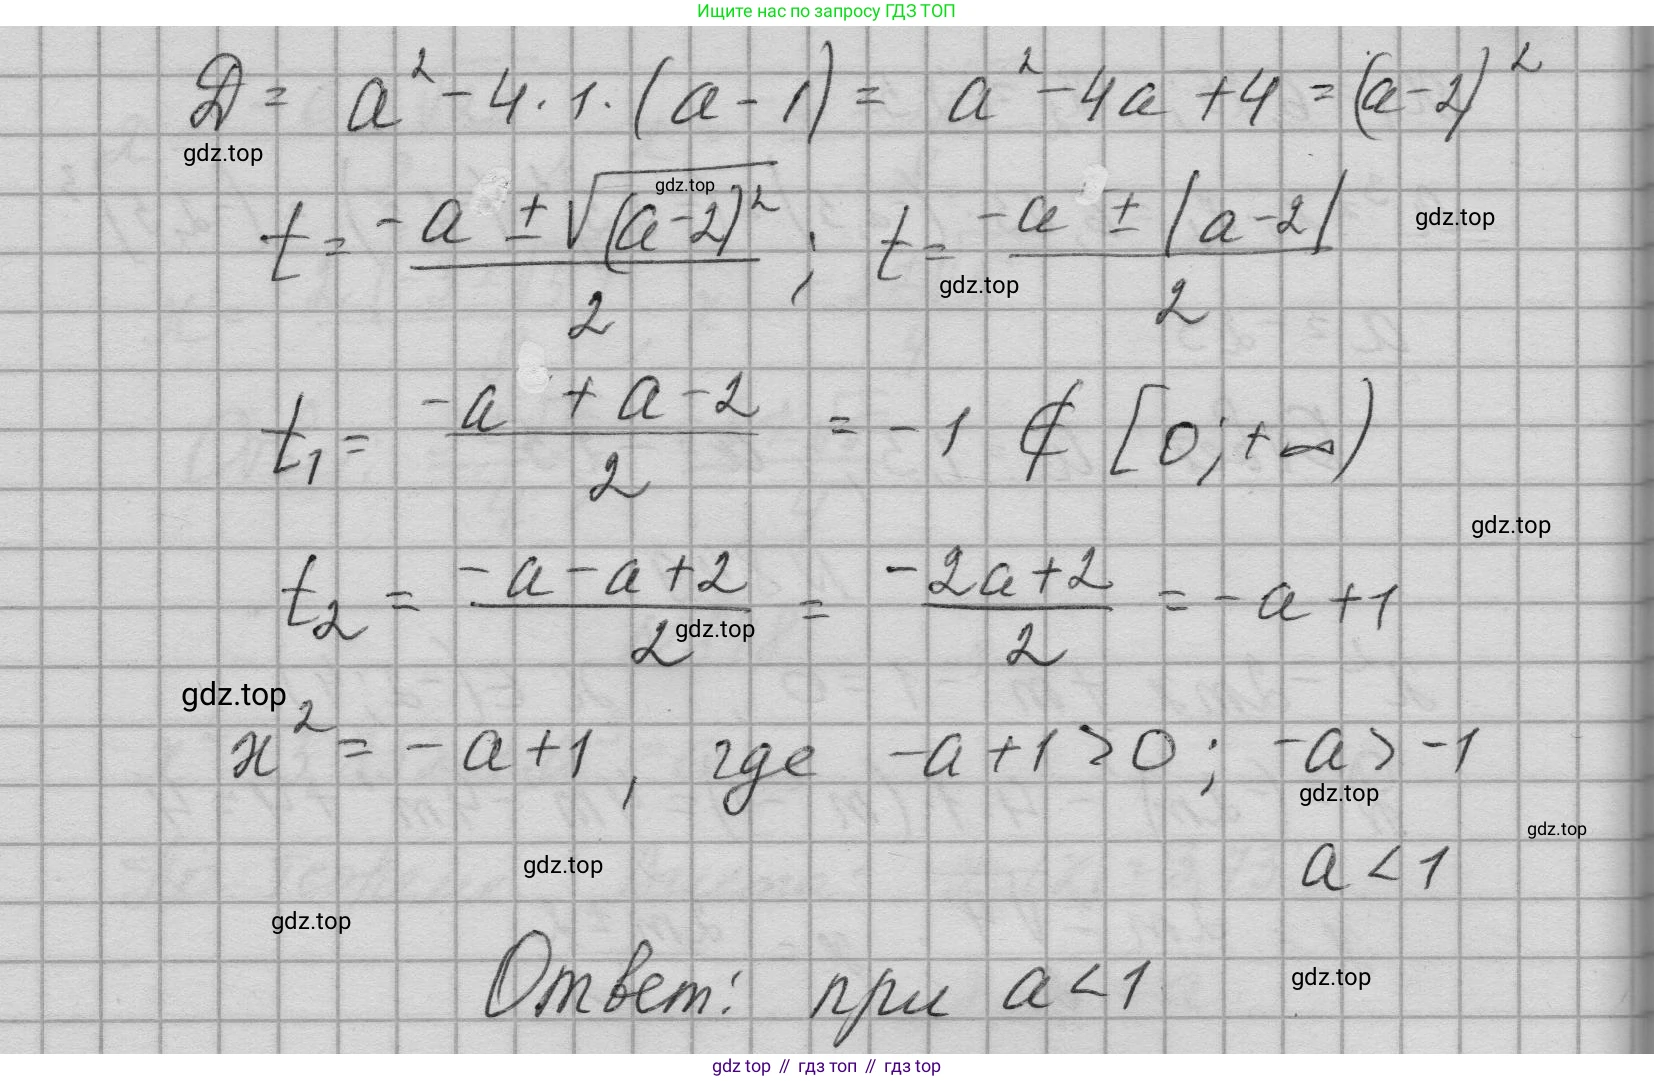 Ищите нас по запросу ГДЗ ТОП
D = a² - 4 · 1 · (a - 1) = a² - 4a + 4 = (a - 2)²
gdz.top
t = (-a ± √(a - 2)²)/2 ; t = (-a ± |a - 2|)/2
gdz.top
gdz.top
gdz.top
t₁ = (-a + a - 2)/2 = -1 ∉ [0; +∞)
gdz.top
t₂ = (-a - a + 2)/2 = (-2a + 2)/2 = -a + 1
gdz.top
gdz.top
x² = -a + 1, где -a + 1 > 0; -a > -1
gdz.top
gdz.top
a < 1
gdz.top
gdz.top
Ответ: при a < 1
gdz.top
gdz top // гдз топ // gdz top